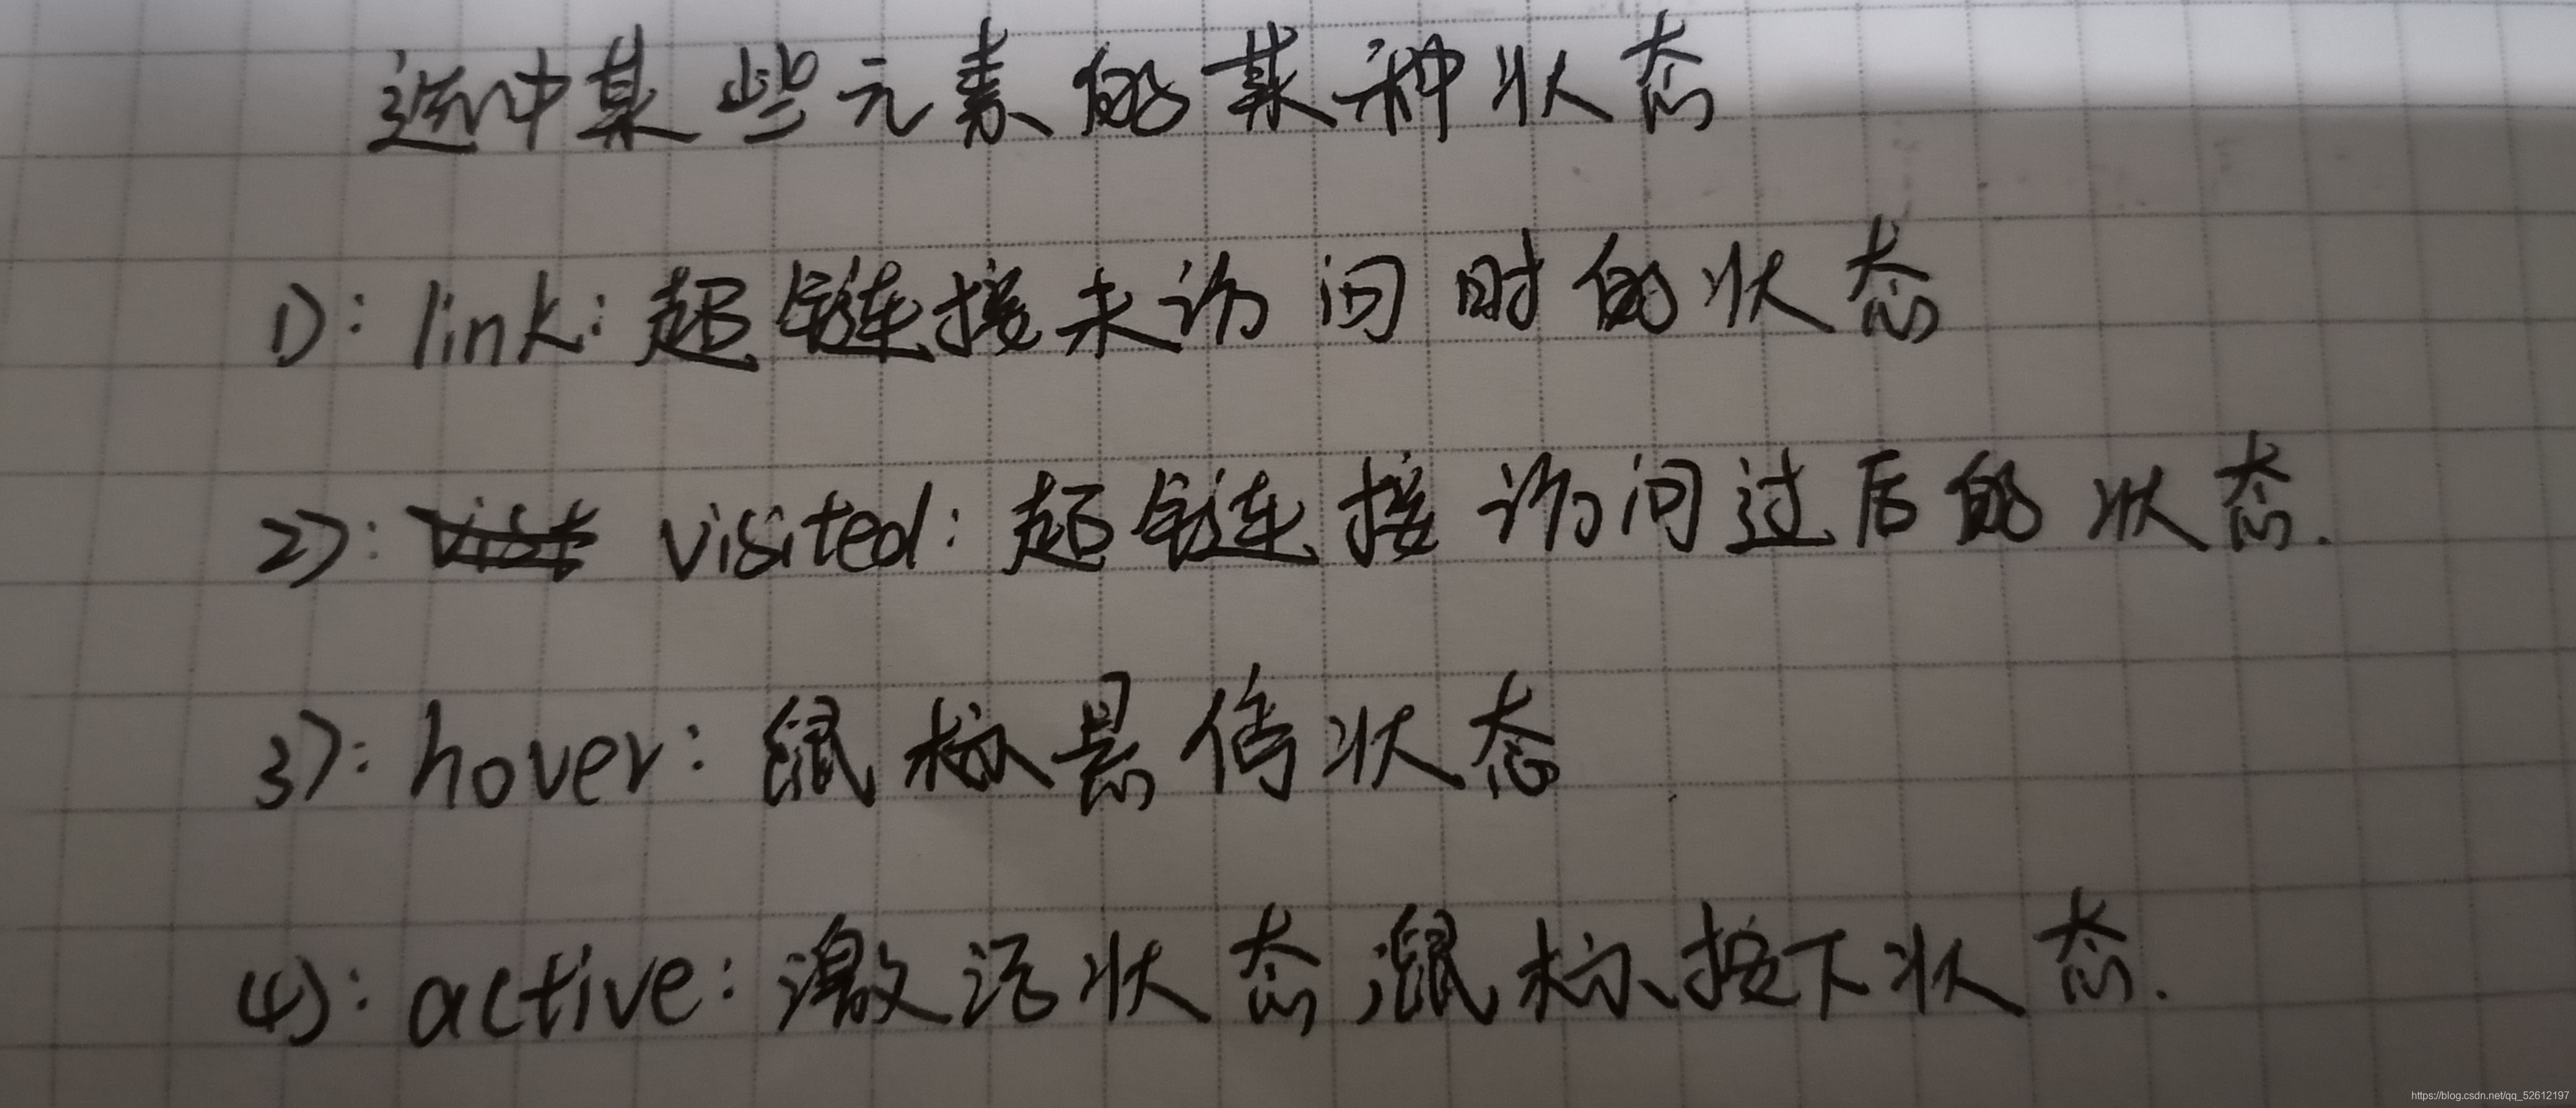 选中某些元素的某种状态
1): link: 超链接未访问时的状态
2): visited: 超链接访问过后的状态.
3): hover: 鼠标悬停状态
4): active: 激活状态,鼠标按下状态.
https://blog.csdn.net/qq_52612197